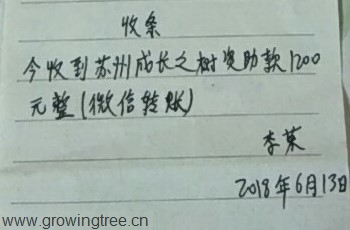 收条
今收到苏州成长之树资助款1200
元整(微信转账)
李英
2018年6月13日
www.growingtree.cn